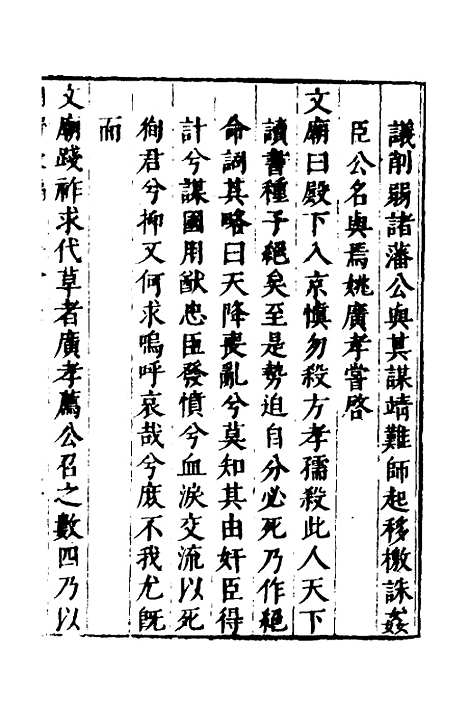 議削弱諸藩公與其謀靖難師起移檄誅姦
臣公名與焉姚廣孝嘗啓
文廟曰殿下入京慎勿殺方孝孺殺此人天下
讀書種子絕矣至是勢迫自分必死乃作絕
命詞其略曰天降喪亂兮莫知其由奸臣得
計兮謀國用猷忠臣發憤兮血淚交流以死
徇君兮抑又何求嗚呼哀哉兮庶不我尤旣
而
文廟踐祚求代草者廣孝薦公召之數四乃以